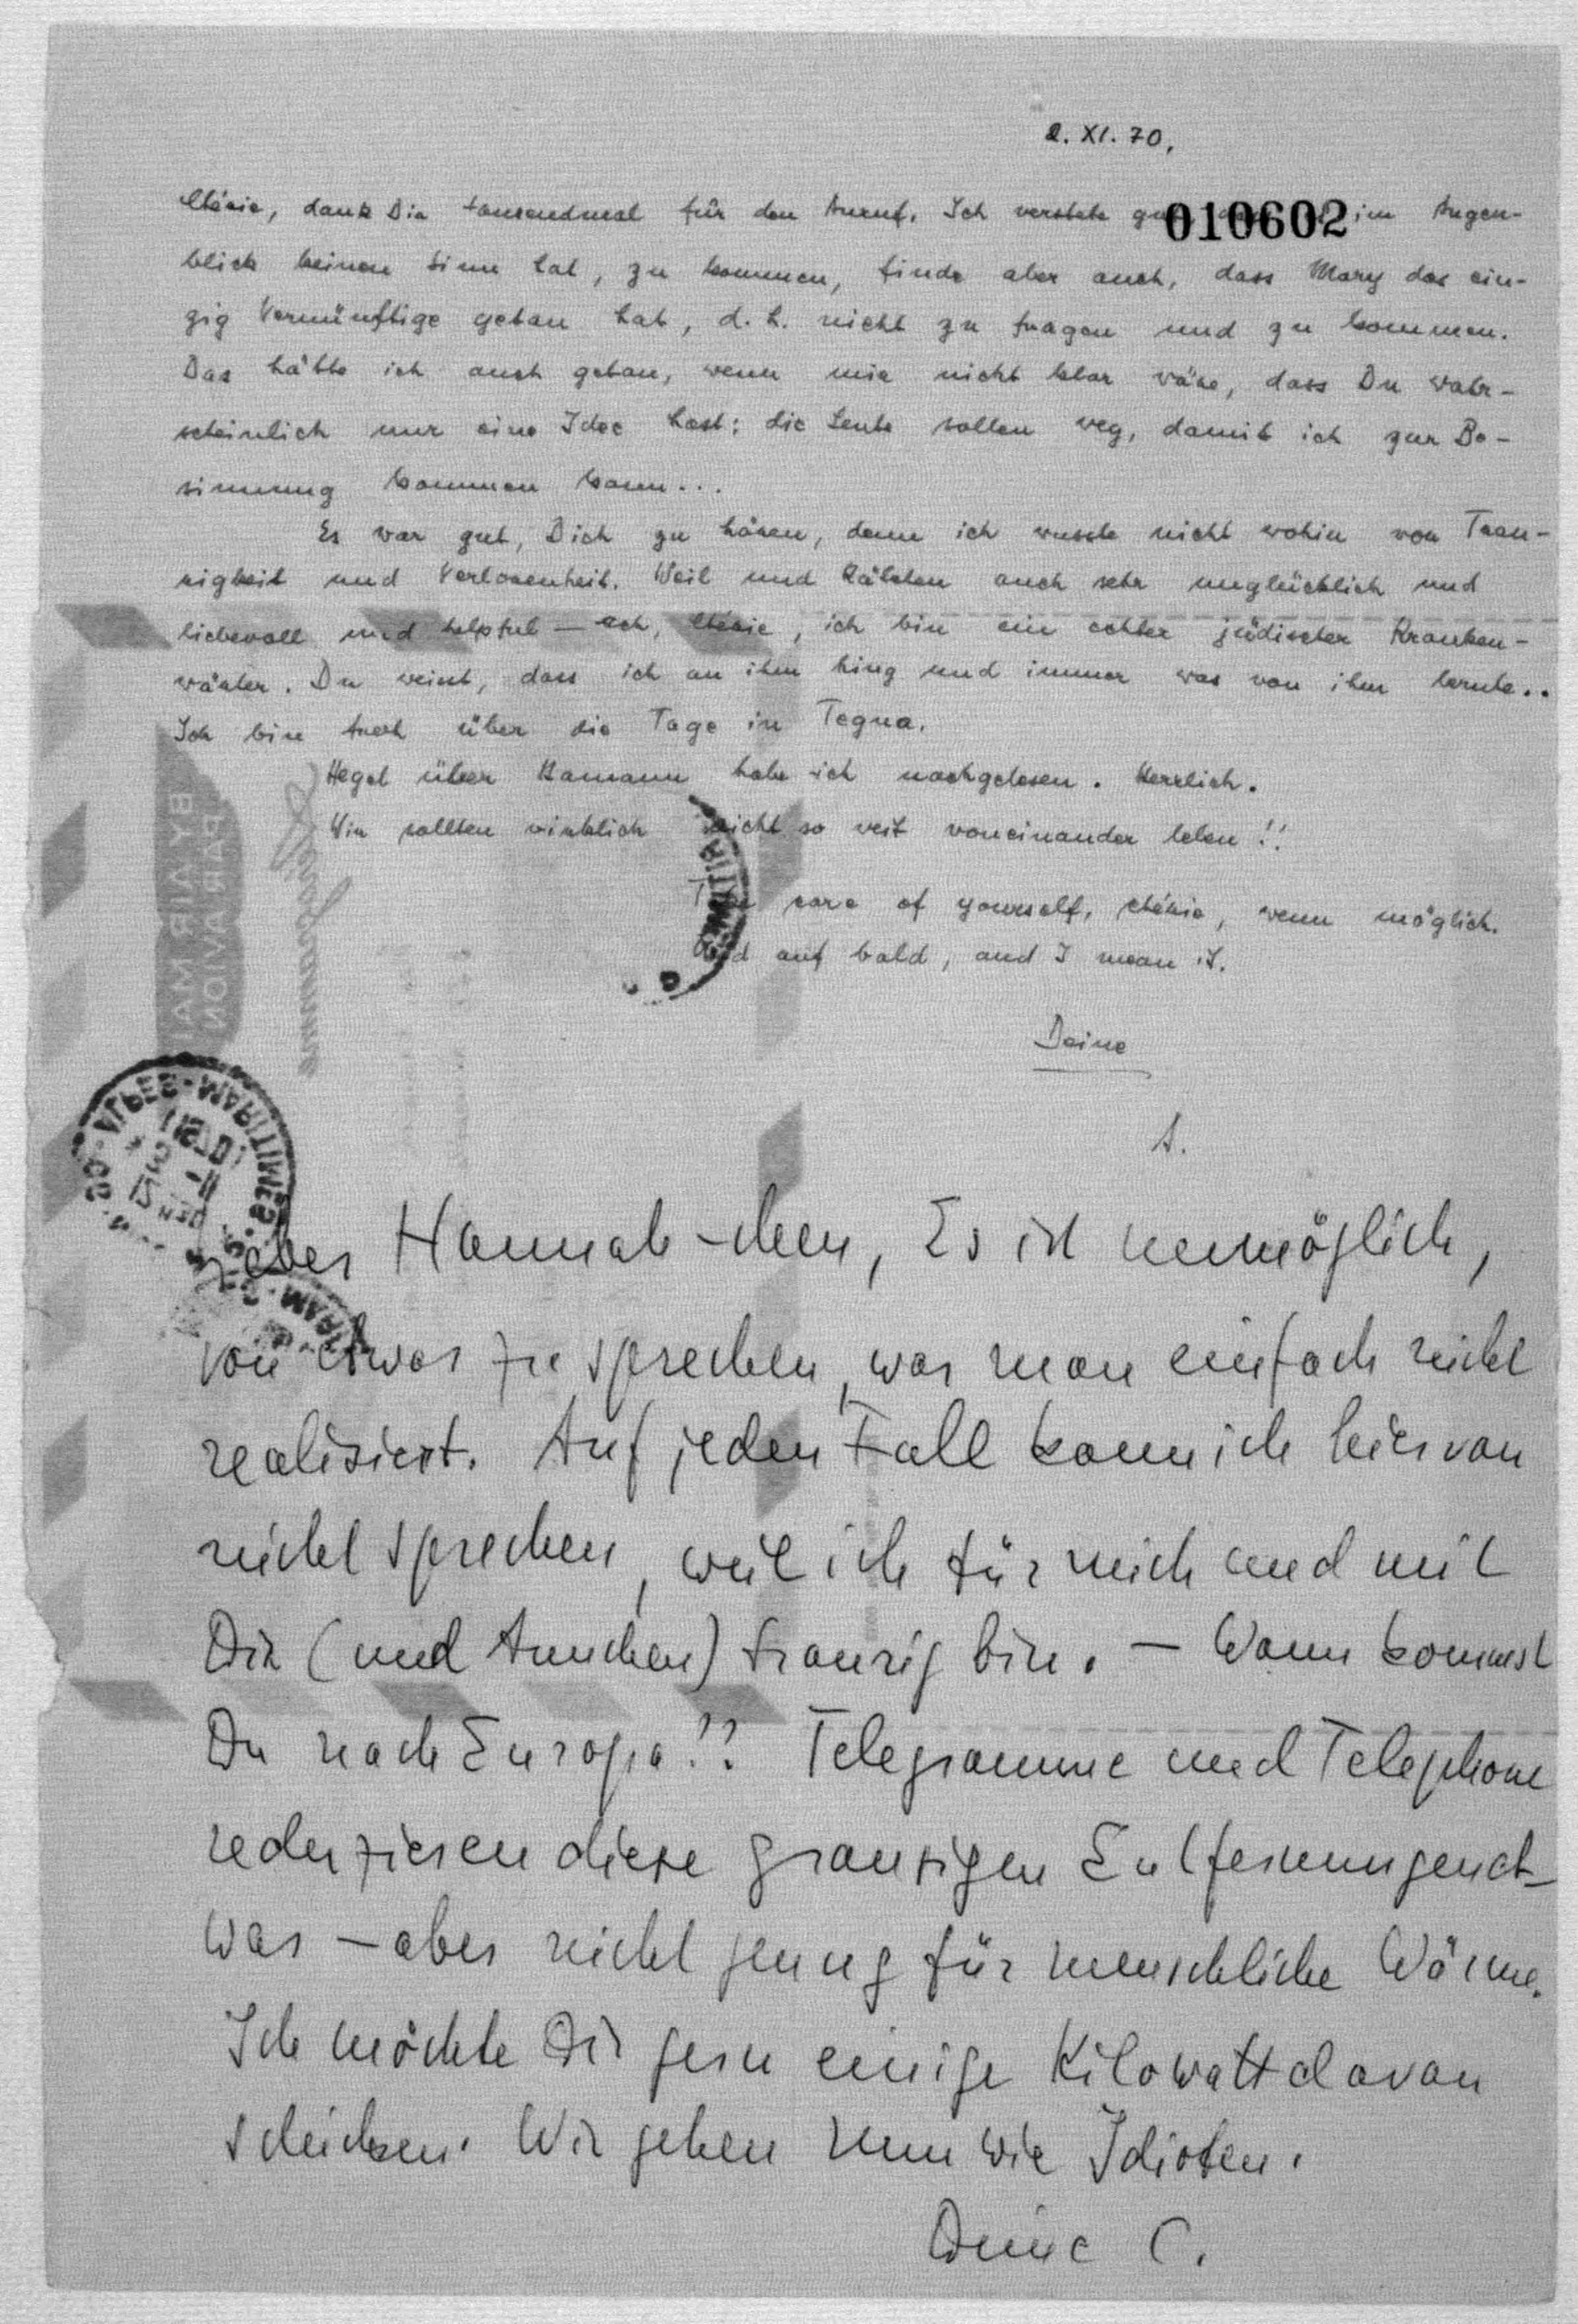 2. XI. 70.
010602
Chérie, dank Dir tausendmal für den Anruf. Ich verstehe gut, dass es im Augen-
blick keinen Sinn hat, zu kommen, finde aber auch, dass Mary das ein-
zig Vernünftige getan hat, d.h. nicht zu fragen und zu kommen.
Das hätte ich auch getan, wenn mir nicht klar wäre, dass Du wahr-
scheinlich nur eine Idee hast: die Leute sollen weg, damit ich zur Be-
sinnung kommen kann...
Es war gut, Dich zu hören, denn ich wusste nicht wohin vor Trau-
rigkeit und Verlorenheit. Weil und Kätchen auch sehr unglücklich und
liebevoll und helpful — ach, Chérie, ich bin ein echter jüdischer Kranken-
wärter. Du weisst, dass ich an ihm hing und immer was von ihm lernte..
Ich bin froh über die Tage in Tegna.
Hegel über Hamann habe ich nachgelesen. Herrlich.
Wir sollten wirklich nicht so weit voneinander leben!!
Take care of yourself, chérie, wenn möglich.
Und auf bald, and I mean it.
Deine
A.
Liebes Hannah-chen, Es ist unmöglich,
von etwas zu sprechen, was man einfach nicht
realisiert. Auf jeden Fall kann ich hiervon
nicht sprechen, weil ich für mich und mit
Dir (und Annchen) traurig bin. — Wann kommst
Du nach Europa?? Telegramme und Telephone
reduzieren diese grausigen Entfernungen et-
was — aber nicht genug für menschliche Wärme.
Ich möchte Dir gern einige Kilowatt davon
schicken. Wir gehen rum wie Idioten.
Deine C.
BY AIR MAIL
PAR AVION
ALPES-MARITIMES